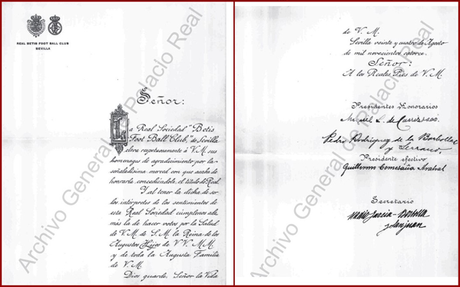 REAL BETIS FOOT BALL CLUB
SEVILLA
Señor:
La Real Sociedad "Betis
Foot Ball Club" de Sevilla
eleva respetuosamente á V.M. sus
homenajes de agradecimiento por la
señaladísima merced con que acaba de
honrarla, concediéndole el título de Real.
Y al tener la dicha de ser
los intérpretes de los sentimientos de
esta Real Sociedad cumplimos además
de hacer votos por la Salud
de V.M. de S.M. la Reina de los
Augustos Hijos de VV.MM.
y de toda la Augusta Familia
de V.M.
Dios guarde, Señor la Vida
de V. M.
Sevilla veinte y cuatro de Agosto
de mil novecientos catorce.
Señor:
A los Reales Pies de V.M.
Presidentes Honorarios
Pedro Rodriguez de la Borbolla
y Serrano
Presidente efectivo
Guillermo Comesaña
Secretario
Archivo General Palacio Real
Archivo General Palacio Real